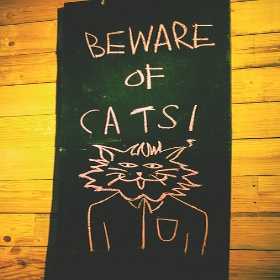 BEWARE
OF
CATS!